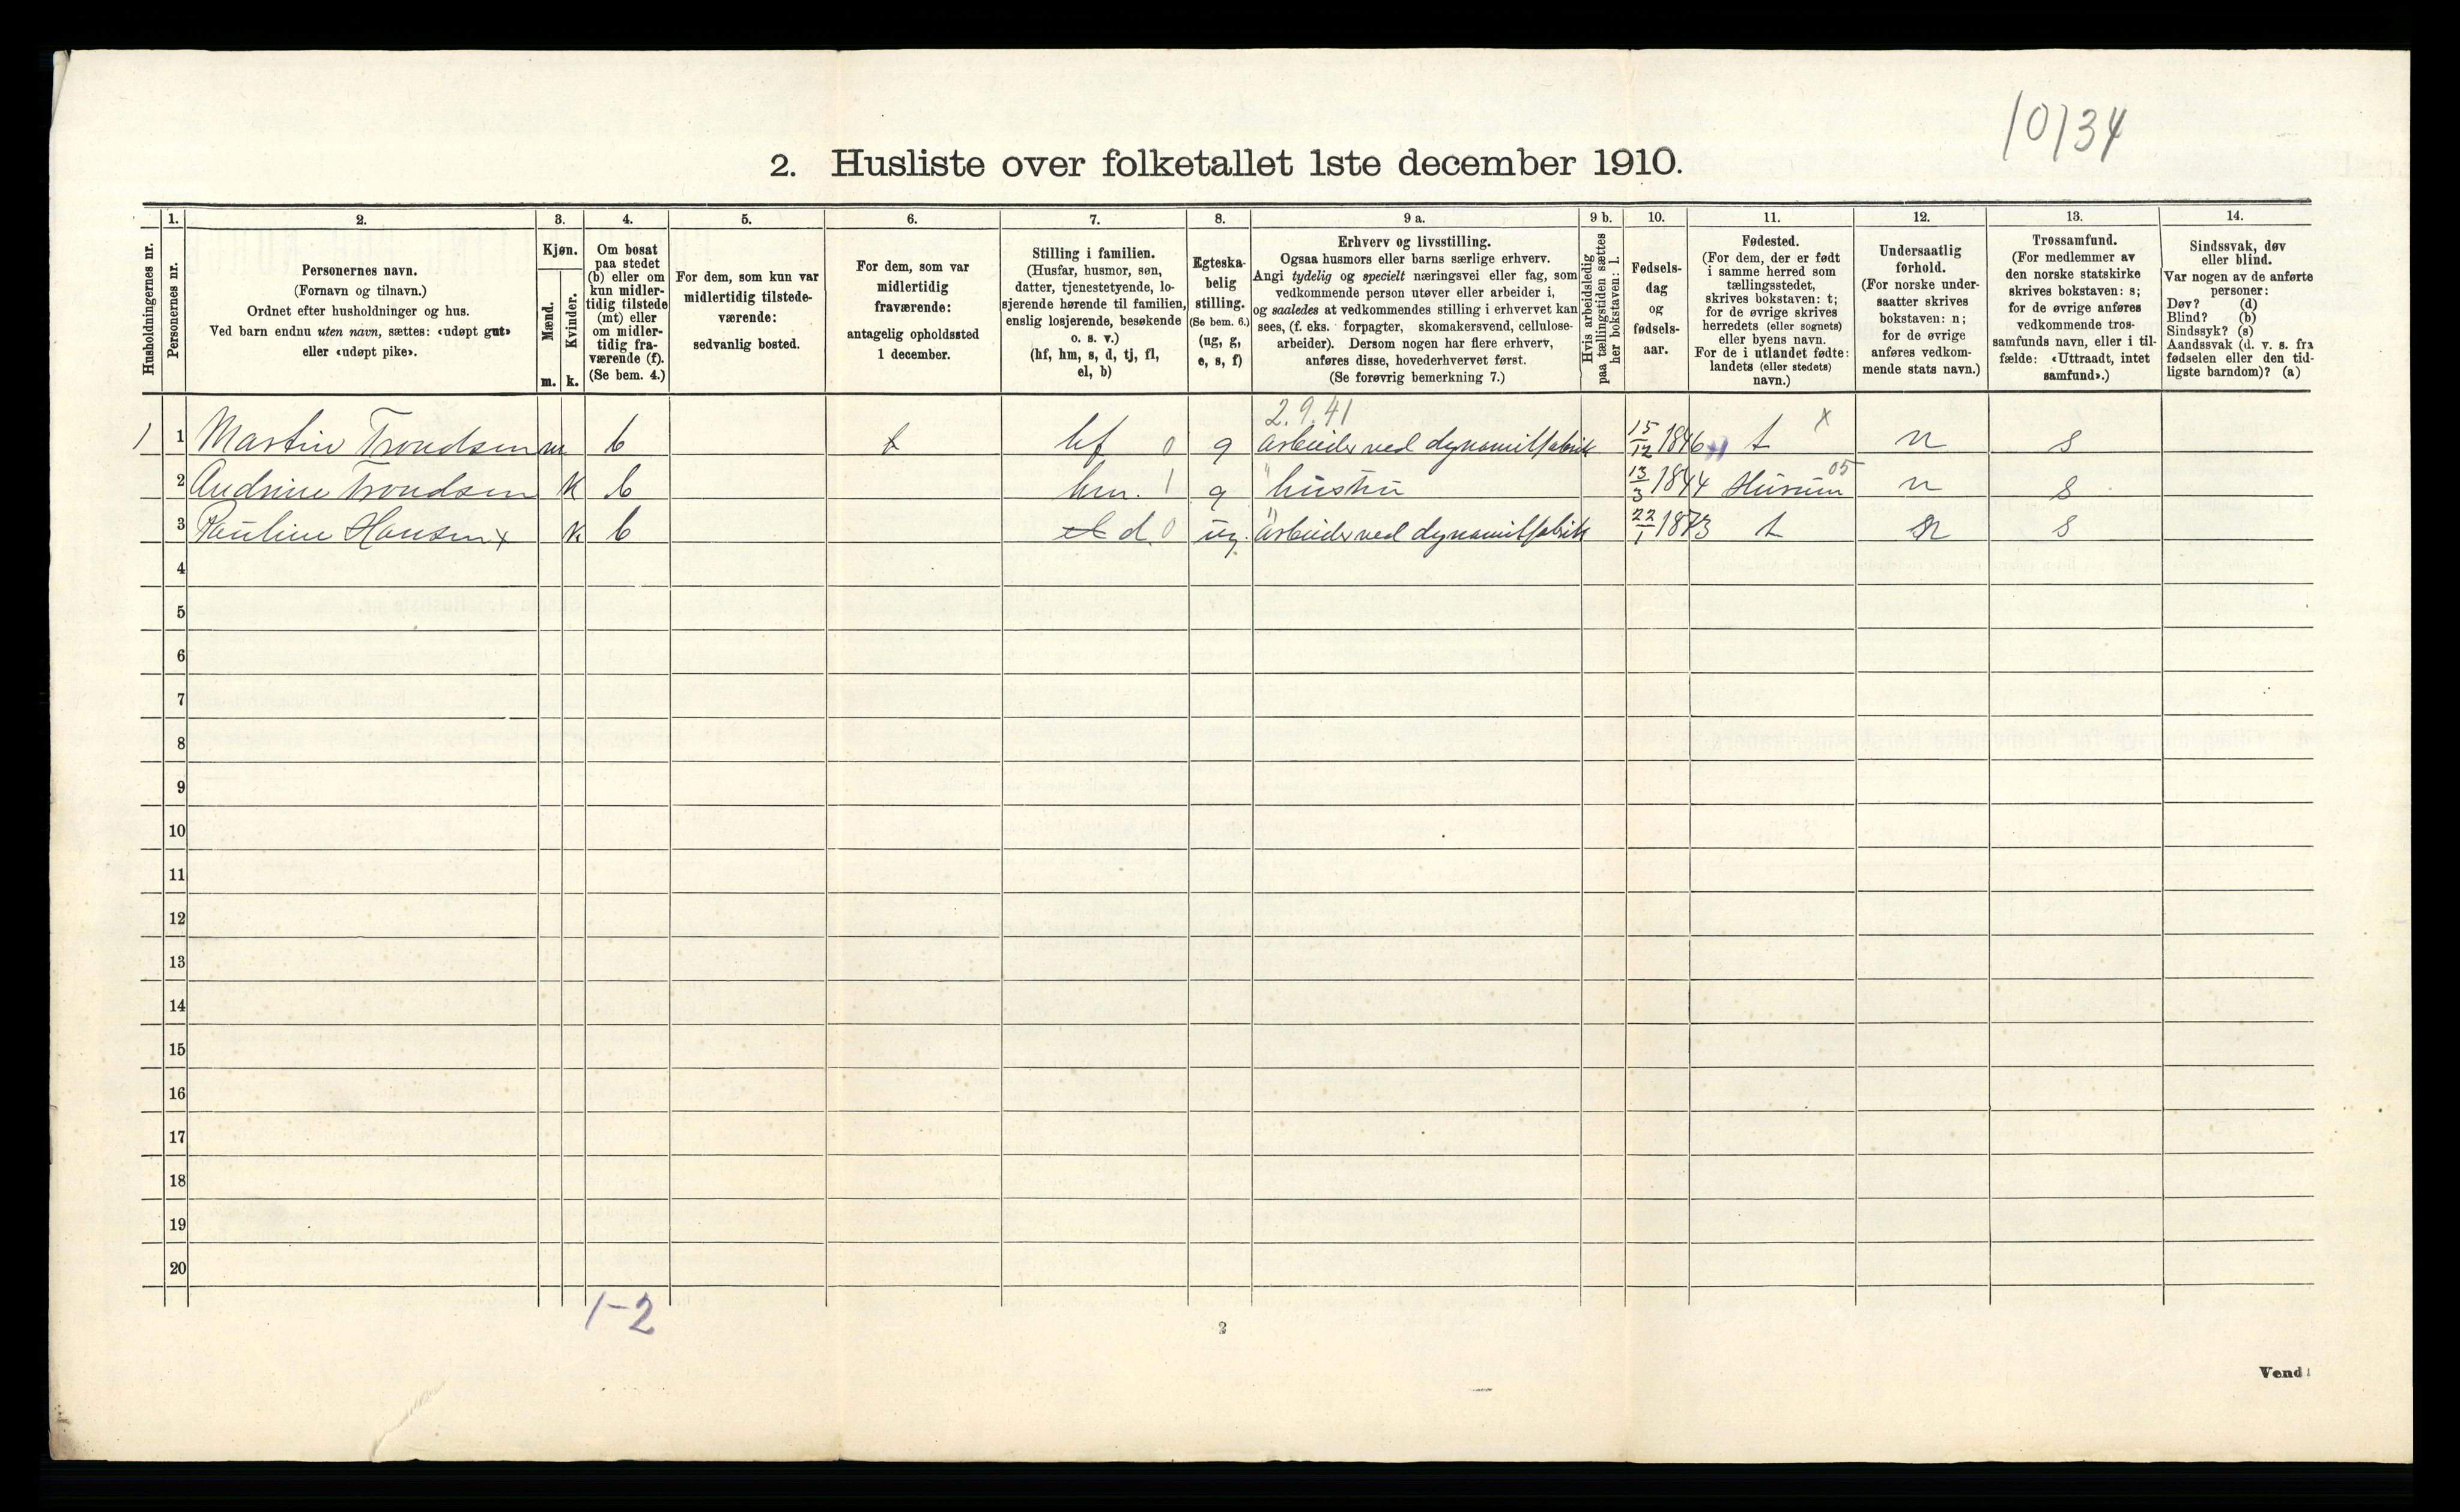 10134
2. Husliste over folketallet 1ste december 1910.
Husholdningernes nr.
1.
Personernes nr.
2.
Personernes navn.
(Fornavn og tilnavn.)
Ordnet efter husholdninger og hus.
Ved barn endnu uten navn, sættes: «udøpt gut»
eller «udøpt pike».
3.
Kjøn.
Mænd.
Kvinder.
m. k.
4.
Om bosat
paa stedet
(b) eller om
kun midler-
tidig tilstede
(mt) eller
om midler-
tidig fra-
værende (f).
(Se bem. 4.)
5.
For dem, som kun var
midlertidig tilstede-
værende:
sedvanlig bosted.
6.
For dem, som var
midlertidig
fraværende:
antagelig opholdssted
1 december.
7.
Stilling i familien.
(Husfar, husmor, søn,
datter, tjenestetyende, lo-
sjerende hørende til familien,
enslig losjerende, besøkende
o. s. v.)
(hf, hm, s, d, tj, fl,
el, b)
8.
Egteska-
belig
stilling.
(Se bem. 6.)
(ug, g,
e, s, f)
9 a.
Erhverv og livsstilling.
Ogsaa husmors eller barns særlige erhverv.
Angi tydelig og specielt næringsvei eller fag, som
vedkommende person utøver eller arbeider i,
og saaledes at vedkommendes stilling i erhvervet kan
sees, (f. eks. forpagter, skomakersvend, cellulose-
arbeider). Dersom nogen har flere erhverv,
anføres disse, hovederhvervet først.
(Se forøvrig bemerkning 7.)
9 b.
Hvis arbeidsledig
paa tællingstiden sættes
her bokstaven: l.
10.
Fødsels-
dag
og
fødsels-
aar.
11.
Fødested.
(For dem, der er født
i samme herred som
tællingsstedet,
skrives bokstaven: t;
for de øvrige skrives
herredets (eller sognets)
eller byens navn.
For de i utlandet fødte:
landets (eller stedets)
navn.)
12.
Undersaatlig
forhold.
(For norske under-
saatter skrives
bokstaven: n;
for de øvrige
anføres vedkom-
mende stats navn.)
13.
Trossamfund.
(For medlemmer av
den norske statskirke
skrives bokstaven: s;
for de øvrige anføres
vedkommende tros-
samfunds navn, eller i til-
fælde: «Uttraadt, intet
samfund».)
14.
Sindssvak, døv
eller blind.
Var nogen av de anførte
personer:
Døv? (d)
Blind? (b)
Sindssyk? (s)
Aandssvak (d. v. s. fra
fødselen eller den tid-
ligste barndom)? (a)
2.9.41
1 1 Martin Trondsen m b t hf 0 g arbeider ved dynamitfabrik 15/12 1846 t x n s
2 Andrine Trondsen k b hm. 1 g " hustru 13/3 1844 Hurum 05 n s
3 Pauline Hansen x k b d. 0 ug. " Arbeider ved dynamitfabrik 22/1 1873 t n s
4
5
6
7
8
9
10
11
12
13
14
15
16
17
18
19
20
1-2
2
Vend!